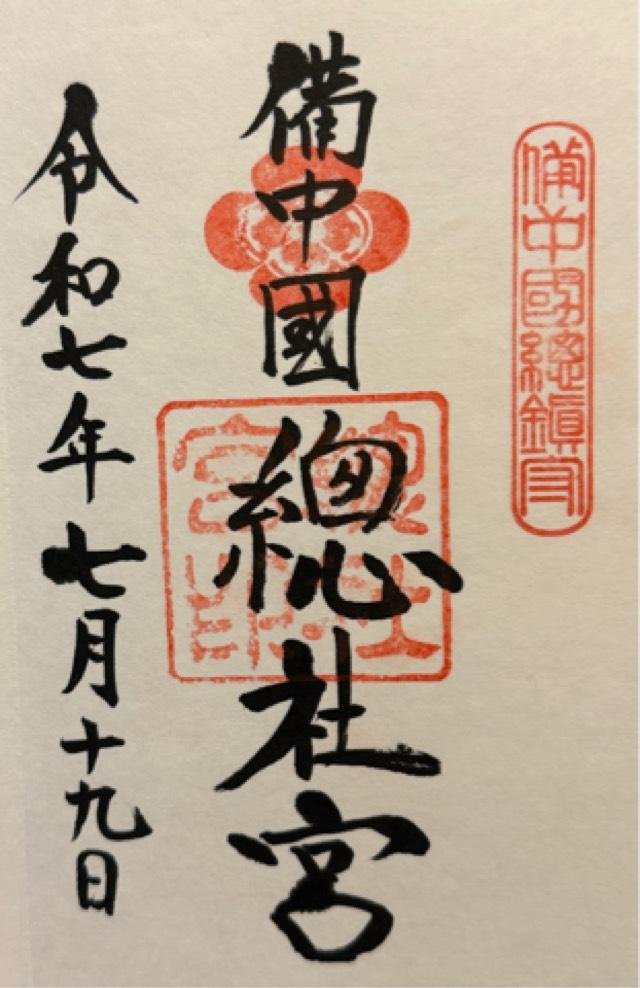 備中國總鎮守
備中國
總社宮
總社宮印
令和七年七月十九日